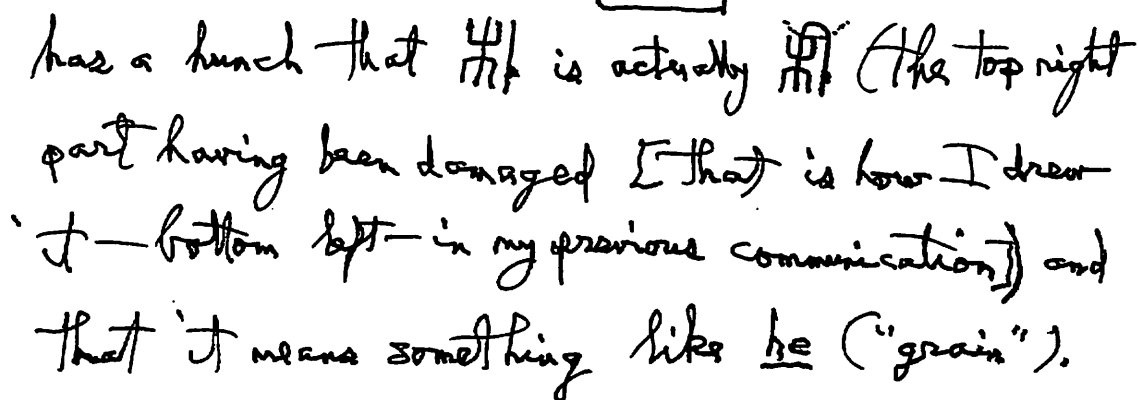 has a hunch that is actually (the top right
part having been damaged [that is how I drew
it — bottom left — in my previous communication]) and
that it means something like he ("grain").